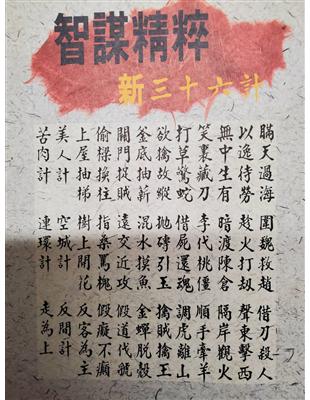 智謀精粹
新三十六計
瞞天過海 圍魏救趙 借刀殺人
以逸待勞 趁火打劫 聲東擊西
無中生有 暗渡陳倉 隔岸觀火
笑裏藏刀 李代桃僵 順手牽羊
打草驚蛇 借屍還魂 調虎離山
欲擒故縱 拋磚引玉 擒賊擒王
釜底抽薪 混水摸魚 金蟬脫殼
關門捉賊 遠交近攻 假道伐虢
偷樑換柱 指桑罵槐 假癡不癲
上屋抽梯 樹上開花 反客為主
美人計 空城計 反間計
苦肉計 連環計 走為上